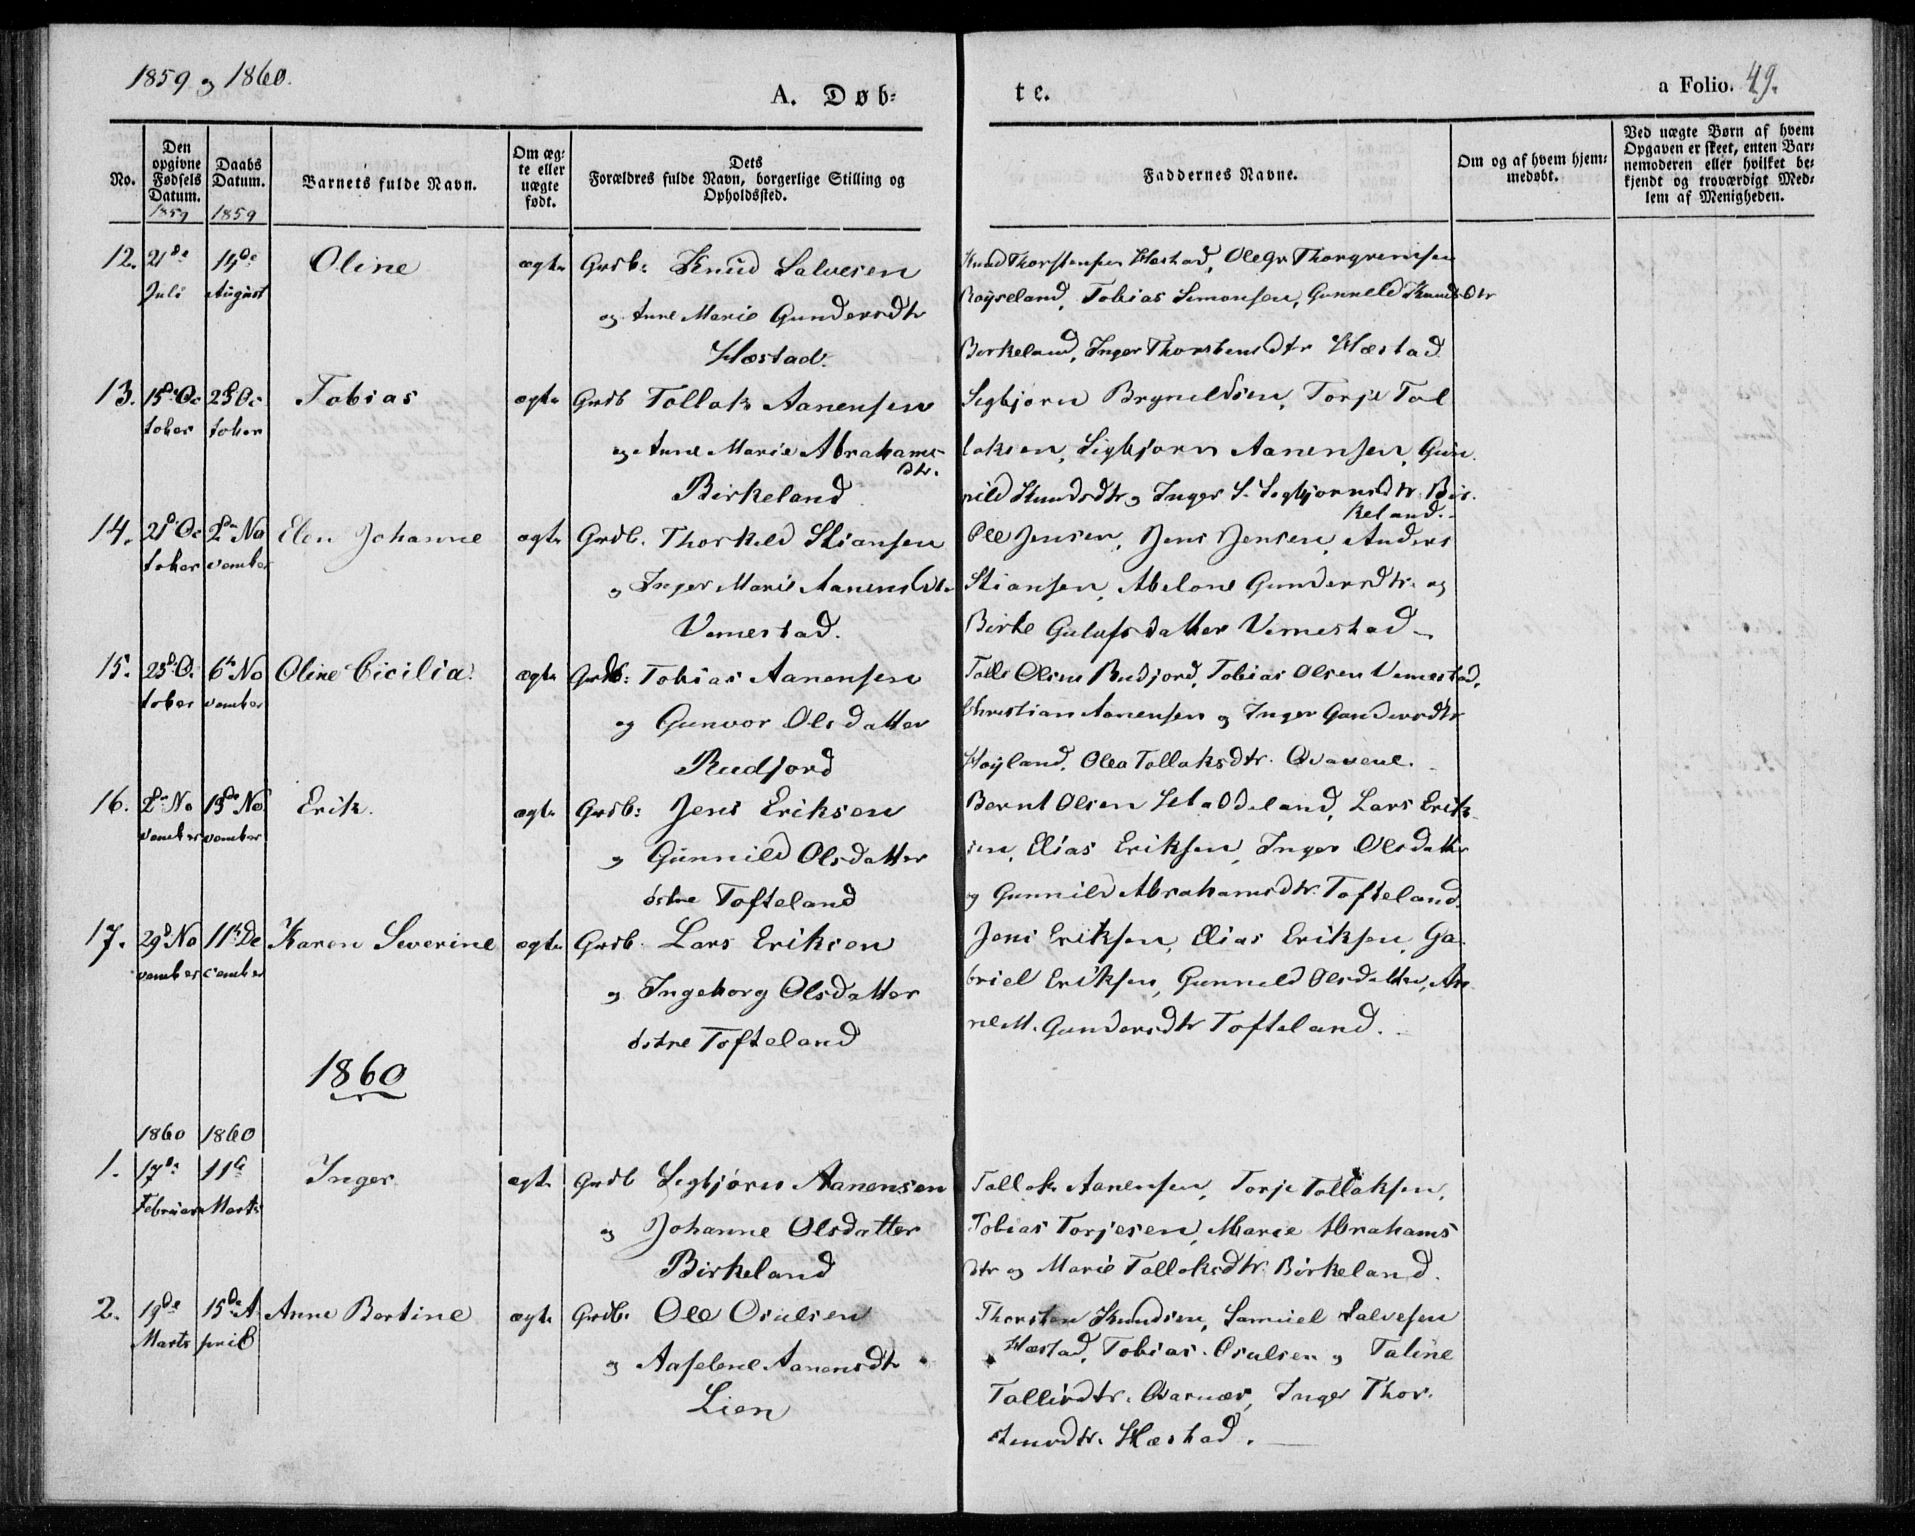 1859 og 1860.
A. Døb-
te.
a Folio. 49.
No.
Den opgivne Fødsels Datum. 1859
Daabs Datum. 1859
Barnets fulde Navn.
Om ægte eller uægte født.
Dets Forældres fulde Navn, borgerlige Stilling og Opholdssted.
Faddernes Navne.
Om og af hvem hjemmedøbt.
Ved uægte Børn af hvem
Opgaven er skeet, enten Bar-
nemoderen eller hvilket be-
kjendt og troværdigt Med-
lem af Menigheden.
12. 21de 14de Oline ægte Grdb: Knud Salvesen
Juli August og Anne Marie Gundersdtr
Hæstad.
Knud Thorstensen Hæstad, Ole Gr Thorgrimsen
Røyseland, Tobias Simonsen, Gunneld Knudsdtr
Birkeland, Inger Thorstensdtr Hæstad
13. 15de Oc 23de Oc Tobias ægte Grdb Tollak Aanensen
tober tober og Anne Marie Abrahams
dtr.
Birkeland
Sigbjørn Bryneldsen, Torje Tol
laksen, Sigbjørn Aanensen, Gun
nild Knudsdtr og Inger S. Sigbjørnsdtr Bir.
keland.
14. 21de Oc No Elen Johanne ægte Grdb. Thorkeld Stiansen
tober vember og Inger Marie Aanensdtr
Vemestad.
Ole Jensen, Jens Jensen, Anders
Stiansen, Abelone Gundersdtr. og
Birte Gulufsdatter Vemestad
15. 23de Oc 6te No Oline Cicilia ægte Grdb: Tobias Aanensen
tober vember og Gunvor Olsdatter
Rudjord
Talle Olsen Rudjord, Tobias Olsen Vemestad,
Christian Aanensen og Inger Gundersdtr
Høyland, Olea Tollaksdtr. Qvavene.
16. No 13de No Erik. ægte Grdb: Jens Eriksen
vember vember og Gunnild Olsdatter
østre Tofteland
Bernt Olsen Staddeland, Lars Erik
sen, Elias Eriksen, Inger Olsdatter
og Gunnild Abrahamsdtr. Tofteland.
17. 29de No 11te De Karen Severine ægte Grdb. Lars Eriksen
vember cember og Ingeborg Olsdatter
østre Tofteland
Jens Eriksen, Elias Eriksen, Ga.
briel Eriksen, Gunneld Olsdatter, An
ne M. Gundersdtr Tofteland.
1860
1860 1860
1. 17de 11te Inger ægte Grdb Sigbjørn Aanensen
Februar Marts og Johanne Olsdatter
Birkeland
Tollak Aanensen, Torje Tollaksen,
Tobias Torjesen, Marie Abrahams
dtr og Marie Tollaksdtr. Birkeland.
2. 19de 15de A Anne Bertine ægte Grdb. Ole Osulsen
Marts pril og Aaselene Aanensdtr
Lien
Thorsten Knudsen, Samuel Salvesen
Hæstad, Tobias Osulsen og Taline
Tallivdtr. Qvarnæs, Inger Thor.
stensdtr. Hæstad.